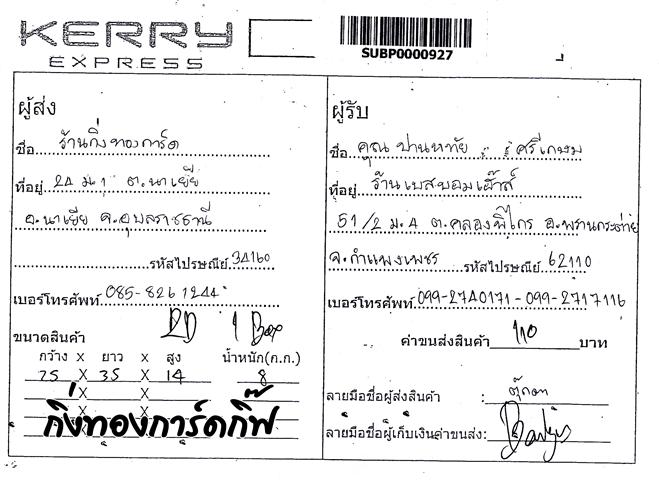 KERRY
EXPRESS
SUBP0000927
ผู้ส่ง
ชื่อ ร้านกิ่งทองการ์ด
ที่อยู่ 24 ม.1 ต.นาเยีย
อ.นาเยีย จ.อุบลราชธานี
รหัสไปรษณีย์ 34160
เบอร์โทรศัพท์ 085-8261244
ขนาดสินค้า 2D 1 Box
กว้าง X ยาว X สูง น้ำหนัก(ก.ก.)
25 X 35 X 14 8
X X
X X
กิ่งทองการ์ดกิ๊ฟ
ผู้รับ
ชื่อ คุณ ปานหทัย ศรีเกษม
ที่อยู่ ร้านเบส
51/2 ม.4 ต.คลองพิไกร อ.พรานกระต่าย
จ.กำแพงเพชร รหัสไปรษณีย์ 62110
เบอร์โทรศัพท์ 099-2740171-099-2717116
ค่าขนส่งสินค้า 110 บาท
ลายมือชื่อผู้ส่งสินค้า : ตุ๊กตา
ลายมือชื่อผู้เก็บเงินค่าขนส่ง: